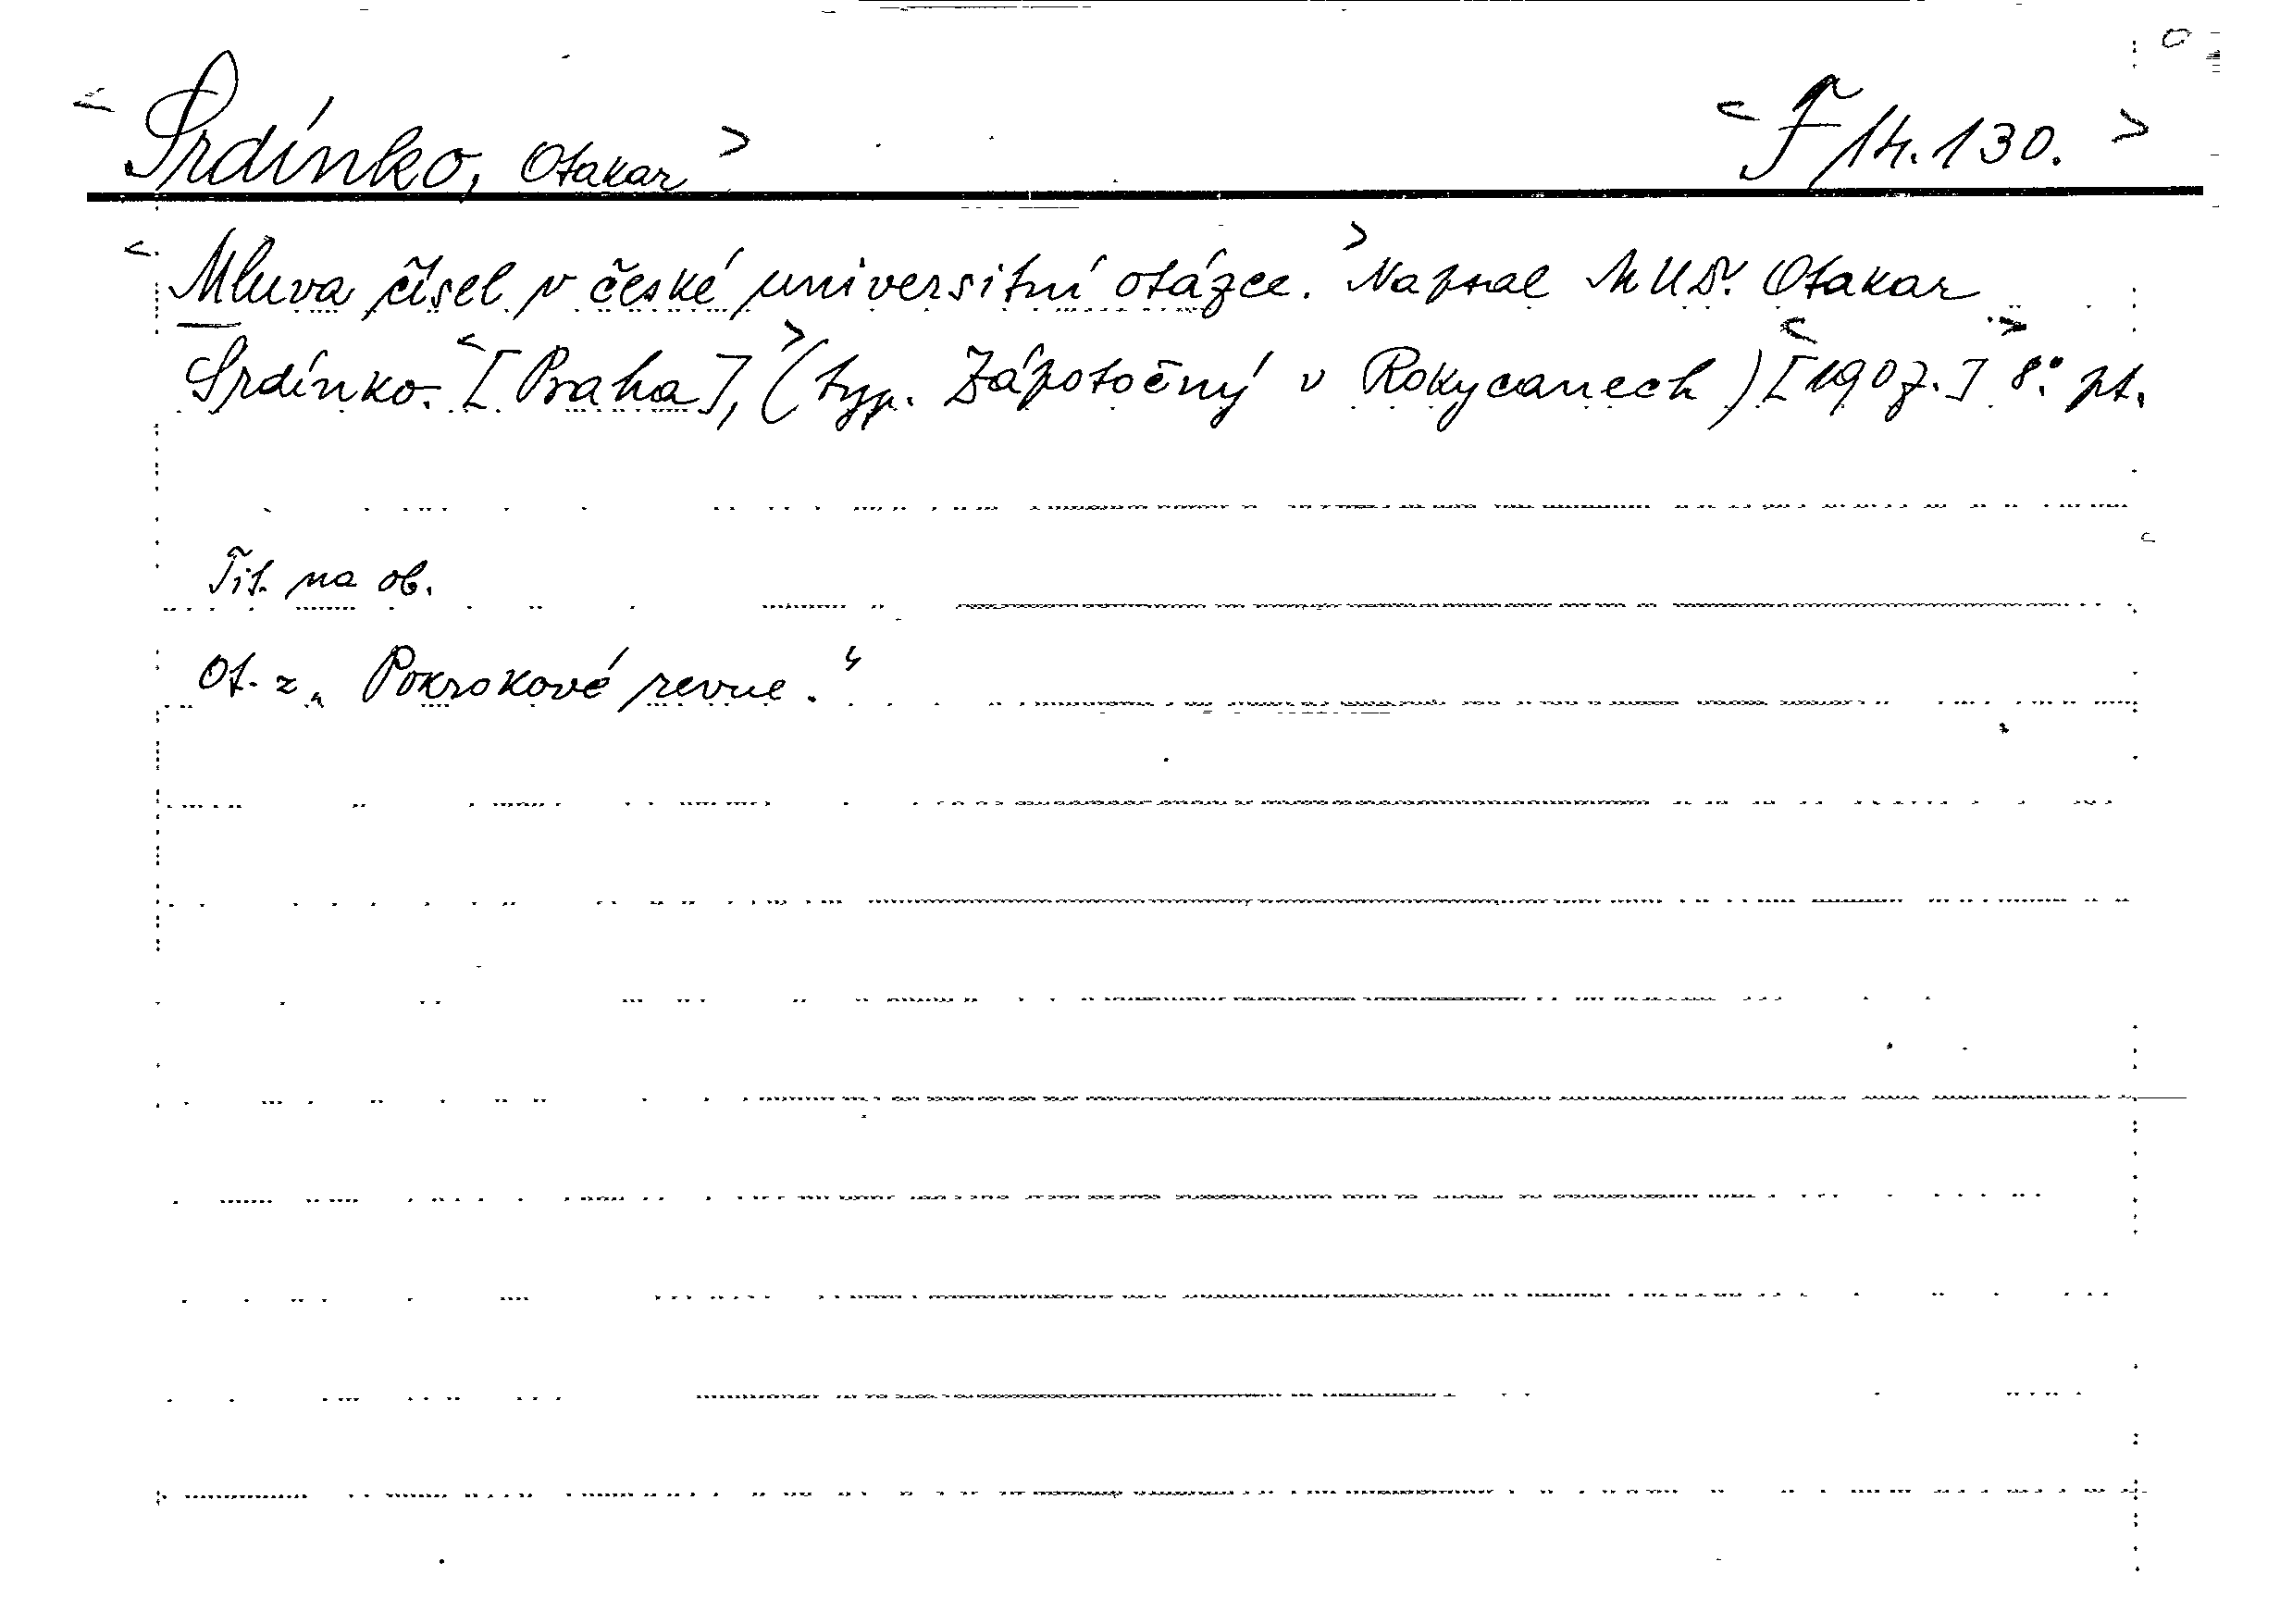 < Srdínko, Otakar > < F 14.130. >
< Mluva čísel v české universitní otázce. > Napsal MUDr. Otakar
Srdínko. < [Praha], > (typ. Zápotočný v Rokycanech) < [1907.] > 8.° pt.
Tit. na ob.
Ot. z „Pokrokové revue.“